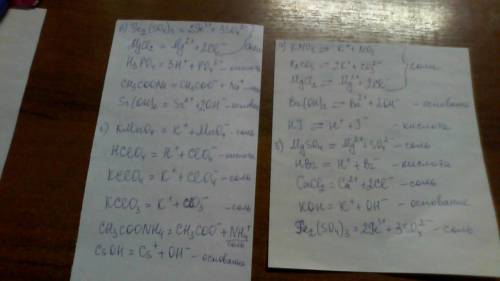 Fe₂(SO₄)₃ = 2Fe³⁺ + 3SO₄²⁻
MgCl₂ = Mg²⁺ + 2Cl⁻ соли
H₃PO₄ = 3H⁺ + PO₄³⁻ - кислота
CH₃COONa = CH₃COO⁻ + Na⁺ - соль
Sr(OH)₂ = Sr²⁺ + 2OH⁻ - основание
KMnO₄ = K⁺ + MnO₄⁻ - соль
HClO₄ = H⁺ + ClO₄⁻ - кислота
KClO₄ = K⁺ + ClO₄⁻ - соль
KClO₃ = K⁺ + ClO₃⁻ - соль
CH₃COONH₄ = CH₃COO⁻ + NH₄⁺
соль
CsOH = Cs⁺ + OH⁻ - основание
KNO₃ ⇌ K⁺ + NO₃⁻
K₂CO₃ = 2K⁺ + CO₃²⁻ соли
MgCl₂ ⇌ Mg²⁺ + 2Cl⁻
Ba(OH)₂ ⇌ Ba²⁺ + 2OH⁻ - основание
HI ⇌ H⁺ + I⁻ - кислота
MgSO₄ = Mg²⁺ + SO₄²⁻ - соль
HBr = H⁺ + Br⁻ - кислота
CaCl₂ = Ca²⁺ + 2Cl⁻ - соль
KOH = K⁺ + OH⁻ - основание
Fe₂(SO₄)₃ = 2Fe³⁺ + 3SO₄²⁻ - соль